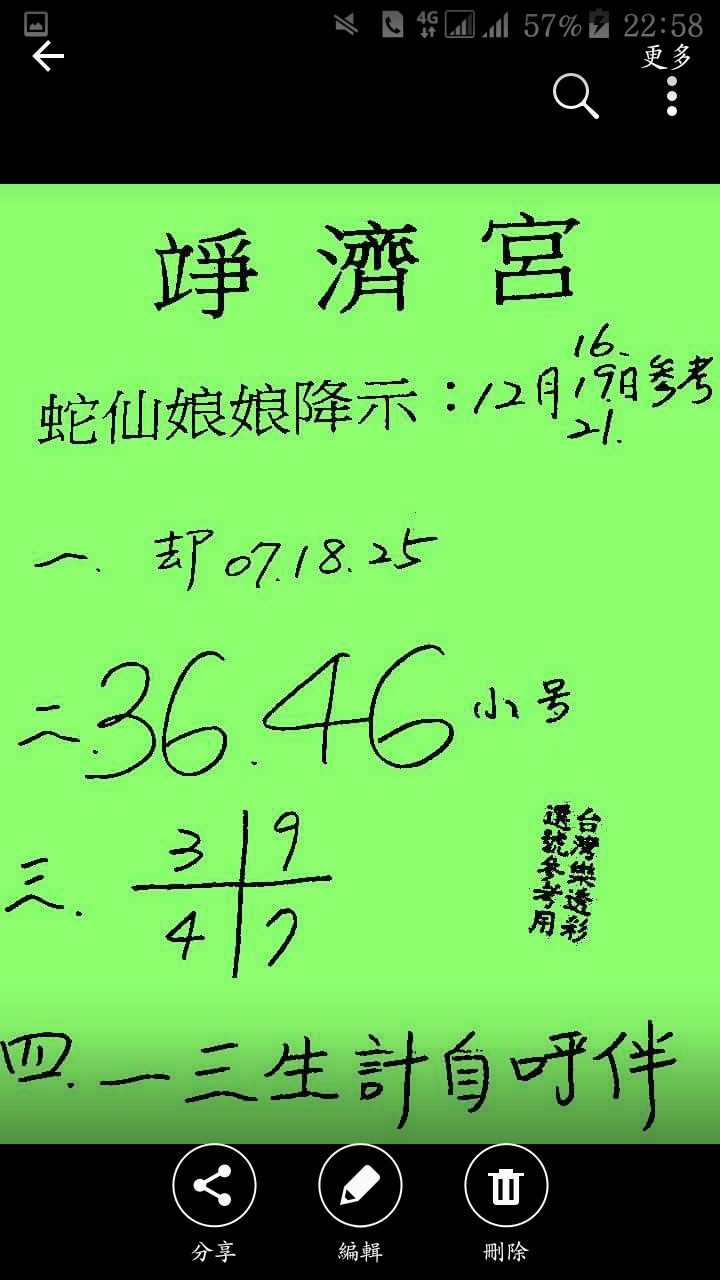 4G 57% 22:58
更多
竫濟宮
16.
蛇仙娘娘降示：12月19日參考
21.
一. 却 07.18.25
二.36.46 小号
三. 3 9
4 7
台灣樂透彩
選號參考用
四.一三生計自呼伴
分享 編輯 刪除